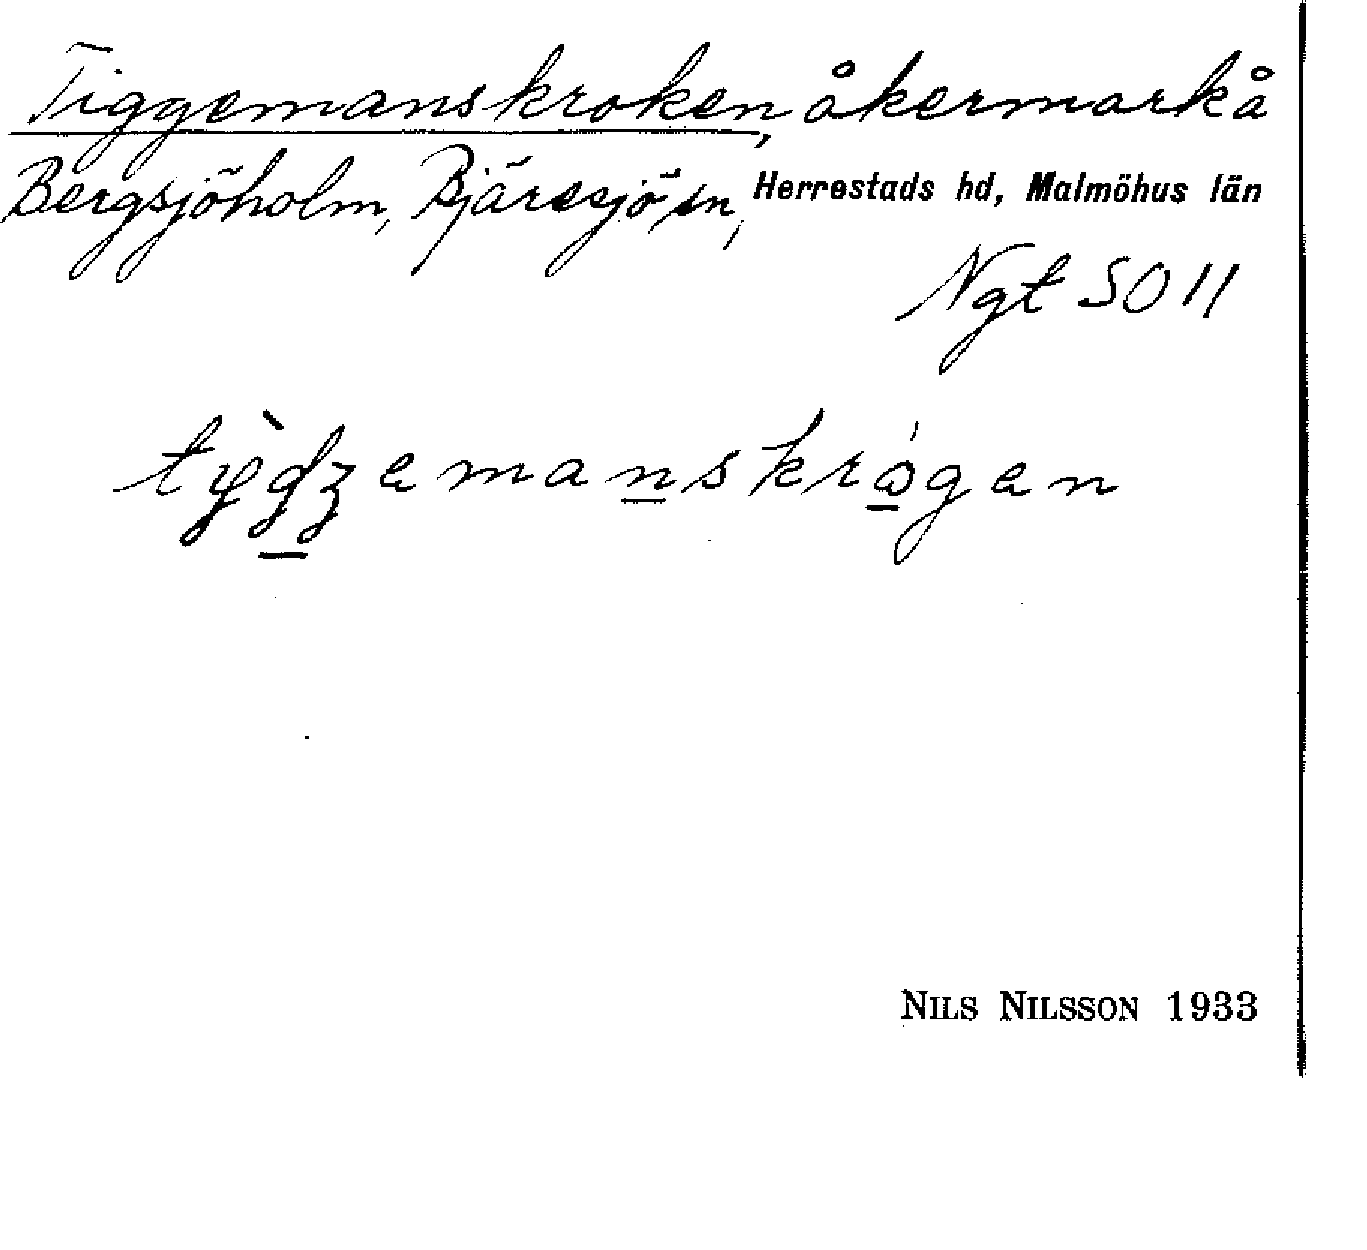 Tiggemanskroken, åkermark å
Bergsjöholm, Bjäresjö sn, Herrestads hd, Malmöhus län
Ngt SO 11
NILS NILSSON 1933